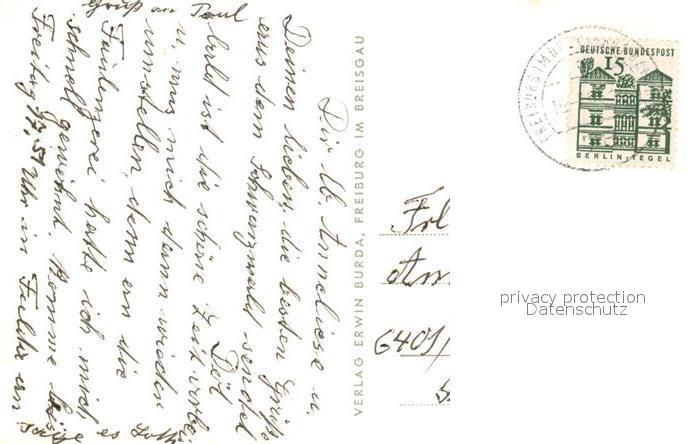 Gruß an Paul
Dir lb. Anneliese u.
Deinen lieben, die besten Grüße
aus dem Schwarzwald sendet
Dot
bald ist die schöne Zeit vorbei
u. muß mich dann wieder
umstellen, denn an die
Faulenzerei hatte ich mich
schnell gewöhnt. Komme
Freitag 17,51 Uhr in Fulda an
es
VERLAG ERWIN BURDA, FREIBURG IM BREISGAU
DEUTSCHE BUNDESPOST
15
BERLIN-TEGEL
FREIBURG IM
Frl
6401/
privacy protection
Datenschutz